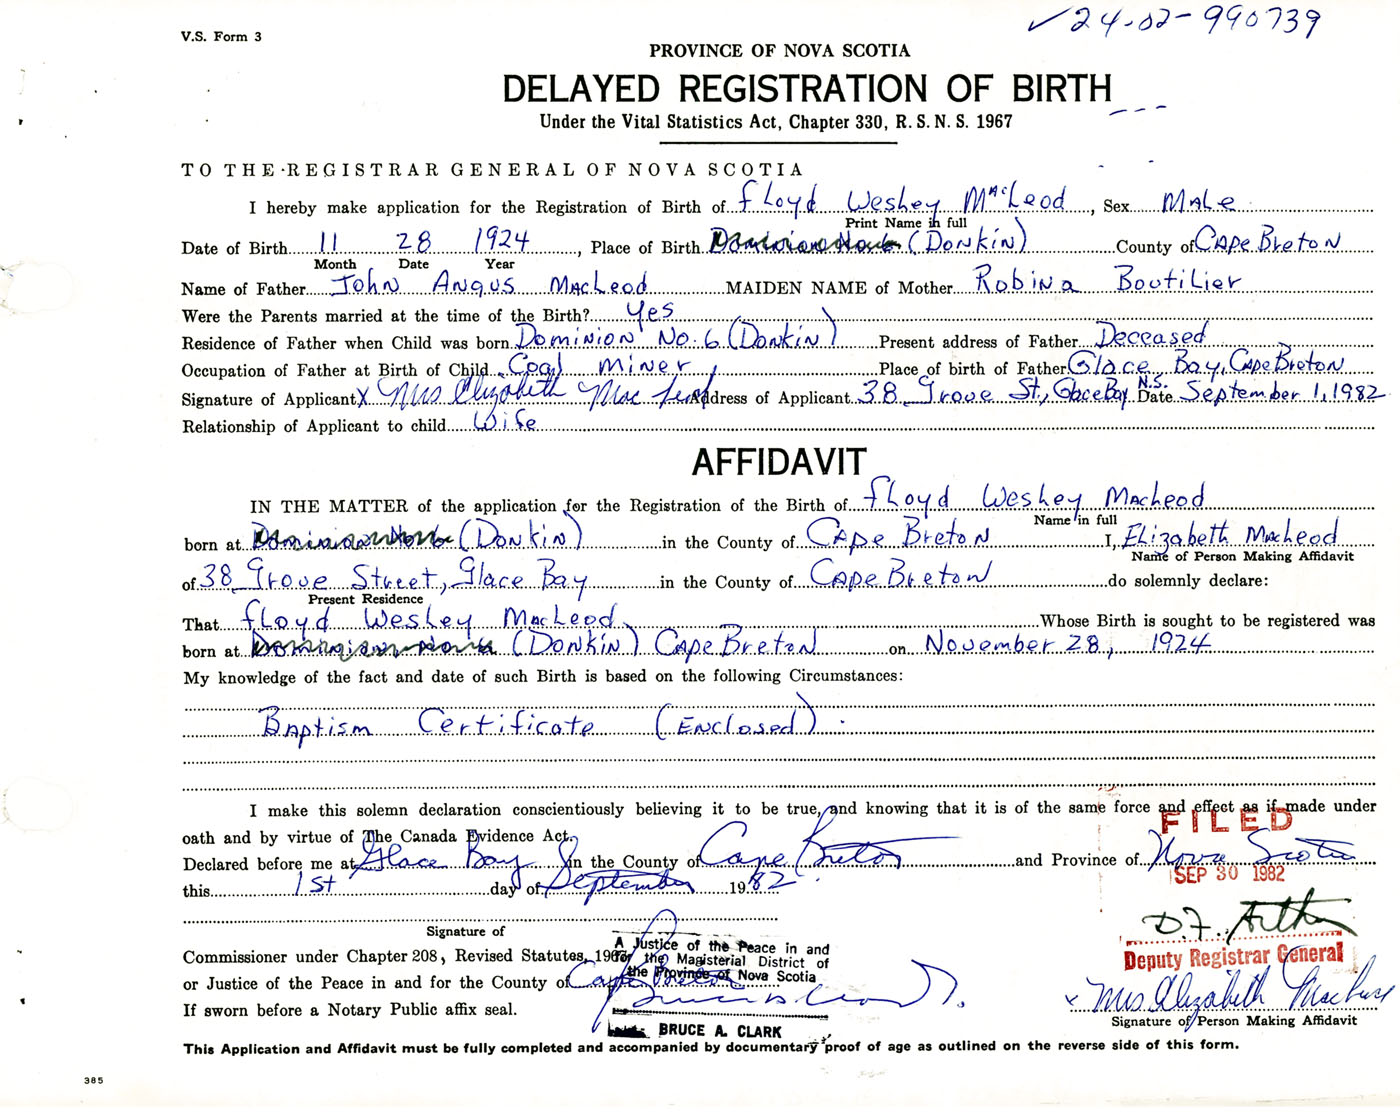 ✓24-02-990739
V.S. Form 3
PROVINCE OF NOVA SCOTIA
DELAYED REGISTRATION OF BIRTH
Under the Vital Statistics Act, Chapter 330, R.S.N.S. 1967
TO THE REGISTRAR GENERAL OF NOVA SCOTIA
I hereby make application for the Registration of Birth of Floyd Wesley MacLeod, Sex Male
Print Name in full
Date of Birth 11 28 1924, Place of Birth Dominion No 6 (Donkin) County of Cape Breton
Month Date Year
Name of Father John Angus MacLeod MAIDEN NAME of Mother Robina Boutilier
Were the Parents married at the time of the Birth? Yes
Residence of Father when Child was born Dominion No. 6 (Donkin) Present address of Father Deceased
Occupation of Father at Birth of Child Coal Miner Place of birth of Father Glace Bay, Cape Breton
Signature of Applicant X Mrs Elizabeth MacLeod Address of Applicant 38 Grove St., Glace Bay N.S. Date September 1, 1982
Relationship of Applicant to child Wife
AFFIDAVIT
IN THE MATTER of the application for the Registration of the Birth of Floyd Wesley MacLeod
Name in full
born at Dominion No 6 (Donkin) in the County of Cape Breton I, Elizabeth MacLeod
Name of Person Making Affidavit
of 38 Grove Street, Glace Bay in the County of Cape Breton do solemnly declare:
Present Residence
That Floyd Wesley MacLeod Whose Birth is sought to be registered was
born at Dominion No 6 (Donkin) Cape Breton on November 28, 1924
My knowledge of the fact and date of such Birth is based on the following Circumstances:
Baptism Certificate (Enclosed).
I make this solemn declaration conscientiously believing it to be true, and knowing that it is of the same force and effect as if made under
oath and by virtue of The Canada Evidence Act.
FILED
Declared before me at Glace Bay in the County of Cape Breton and Province of Nova Scotia
this 1st day of September 1982
SEP 30 1982
D.F. Arthur
Deputy Registrar General
Signature of
Commissioner under Chapter 208, Revised Statutes, 1967
or Justice of the Peace in and for the County of Cape Breton
If sworn before a Notary Public affix seal.
A Justice of the Peace in and
for the Magisterial District of
the Province of Nova Scotia
BRUCE A. CLARK
x Mrs Elizabeth MacLeod
Signature of Person Making Affidavit
This Application and Affidavit must be fully completed and accompanied by documentary proof of age as outlined on the reverse side of this form.
385